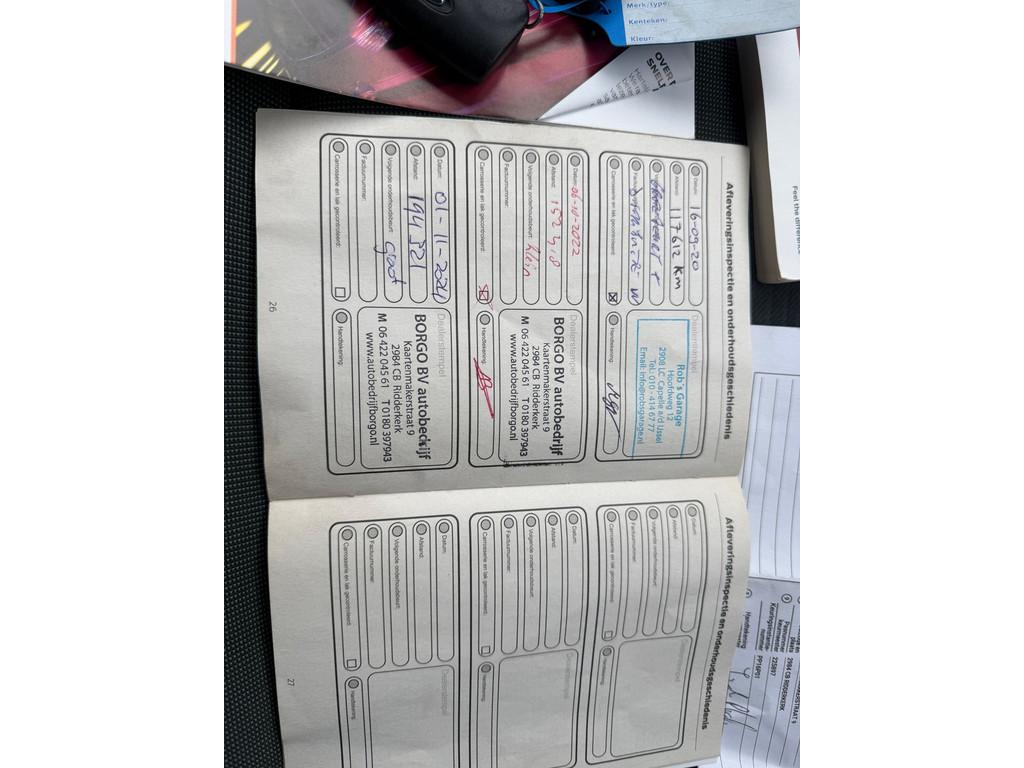 Merk/type:
Kenteken:
Kleur:
OVER
SNEL
Feel the difference
Afleveringsinspectie en onderhoudsgeschiedenis
Datum: 16-09-20
Afstand: 117612 Km
Factuurnummer:
Carrosserie en lak gecontroleerd:
Dealerstempel
Rob's Garage
Hoofdweg 12
2908 LC Capelle a/d IJssel
Tel.: 010 - 414 67 77
Email: info@robsgarage.nl
Handtekening:
Datum: 06-10-2022
Afstand:
Volgende onderhoudsbeurt: klein
Factuurnummer:
Carrosserie en lak gecontroleerd:
Dealerstempel
BORGO BV autobedrijf
Kaartenmakerstraat 9
2984 CB Ridderkerk
M 06 422 045 61 T 0180 397943
www.autobedrijfborgo.nl
Handtekening:
Datum: 01-11-2024
Afstand: 194321
Volgende onderhoudsbeurt: groot
Factuurnummer:
Carrosserie en lak gecontroleerd:
Dealerstempel
BORGO BV autobedrijf
Kaartenmakerstraat 9
2984 CB Ridderkerk
M 06 422 045 61 T 0180 397943
www.autobedrijfborgo.nl
Handtekening:
26
Afleveringsinspectie en onderhoudsgeschiedenis
Datum:
Afstand:
Volgende onderhoudsbeurt:
Factuurnummer:
Carrosserie en lak gecontroleerd:
Dealerstempel
Handtekening:
Datum:
Afstand:
Volgende onderhoudsbeurt:
Factuurnummer:
Carrosserie en lak gecontroleerd:
Dealerstempel
Handtekening:
Datum:
Afstand:
Volgende onderhoudsbeurt:
Factuurnummer:
Carrosserie en lak gecontroleerd:
Dealerstempel
Handtekening:
27
plaats 2984 CB RIDDERKERK
Pasnummer
keurmeester 225897
Keuringsinstantie-
nummer PP16P01
Handtekening